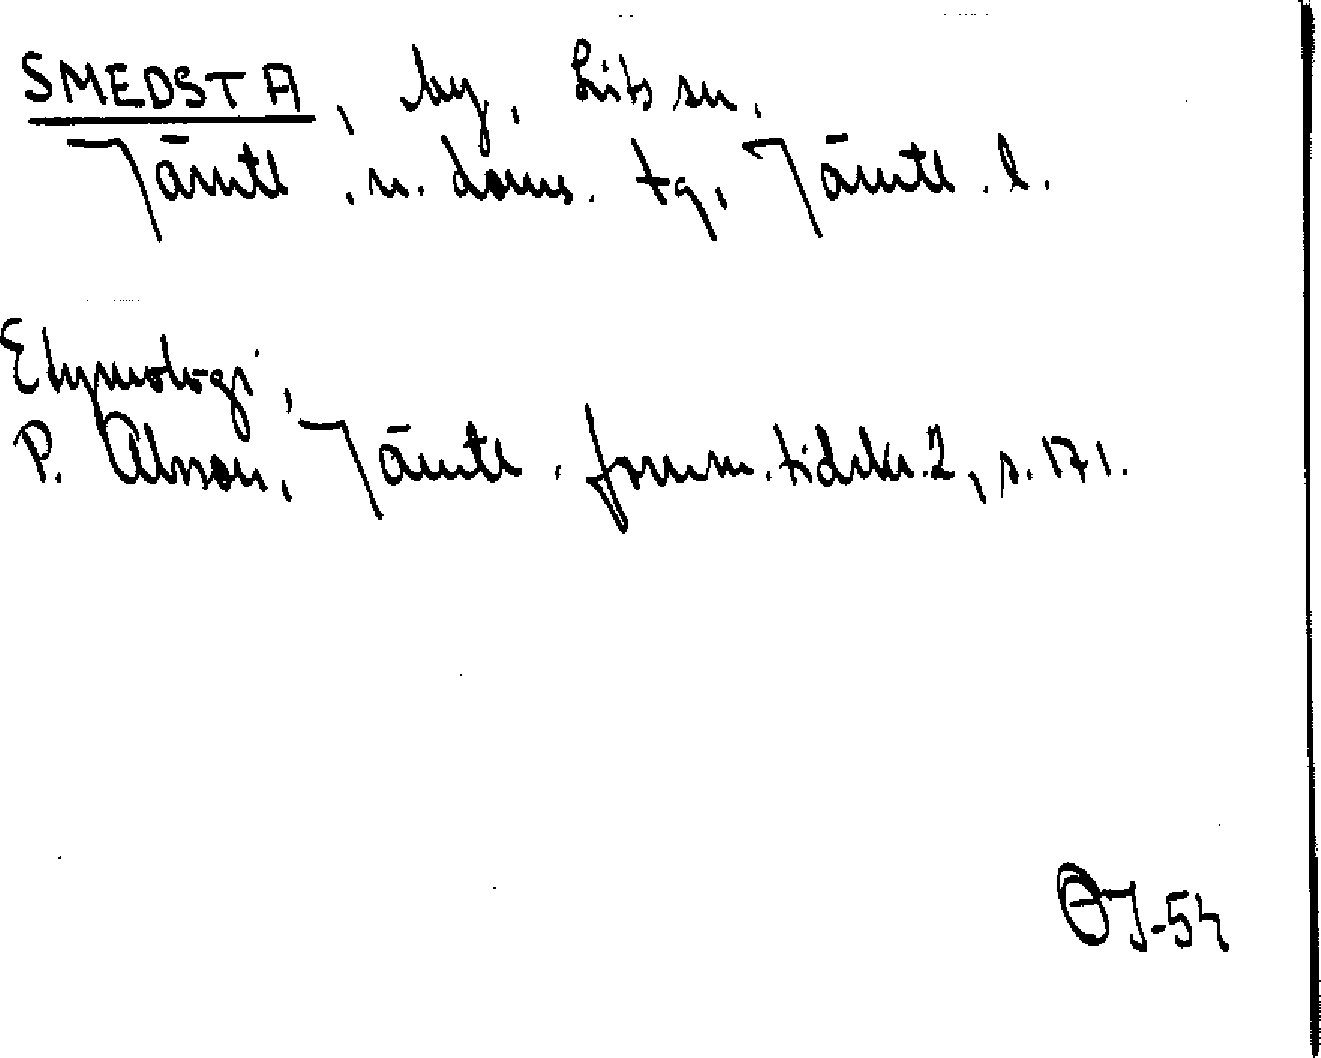 SMEDSTA, by, Lits sn,
Jämtl. n. doms. tg, Jämtl. l.
Etymologi,
P. Olsson, Jämtl. fornm. tidskr. 2, s. 171.
OJ-54